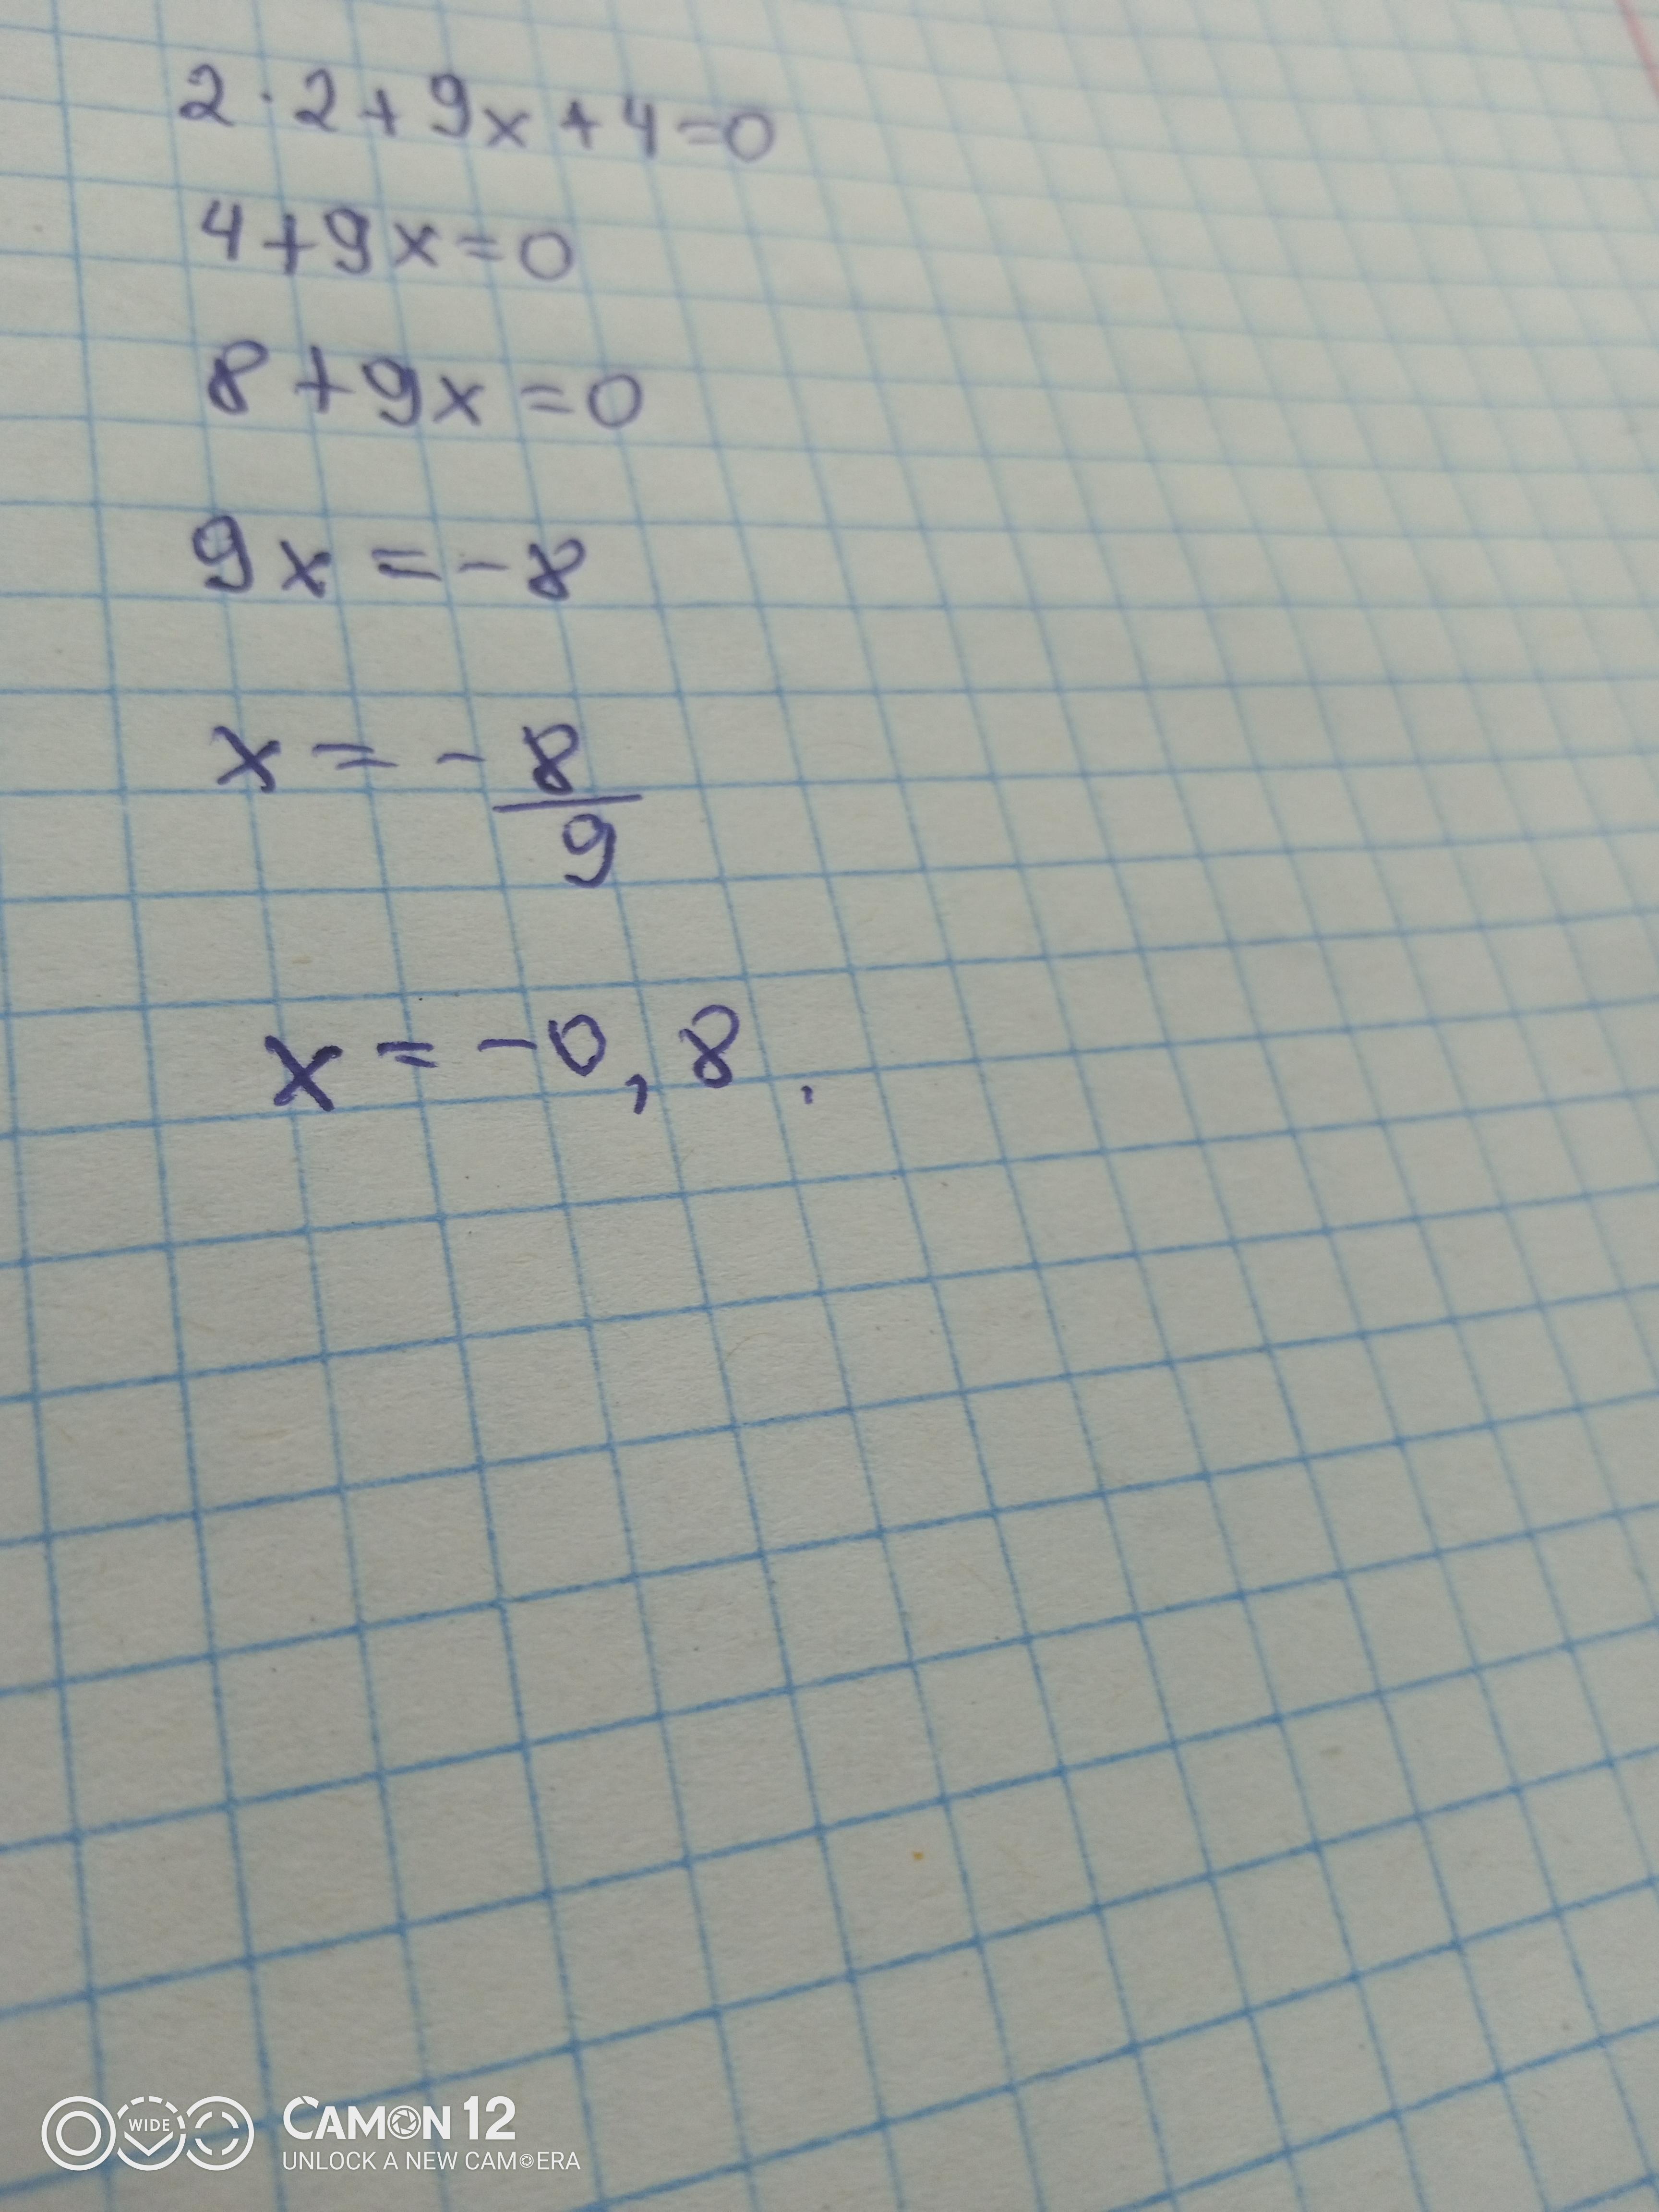 2·2+9x+4=0
4+9x=0
8+9x=0
9x=-8
x=-8/9
x=-0,8.
WIDE
CAMON 12
UNLOCK A NEW CAMERA